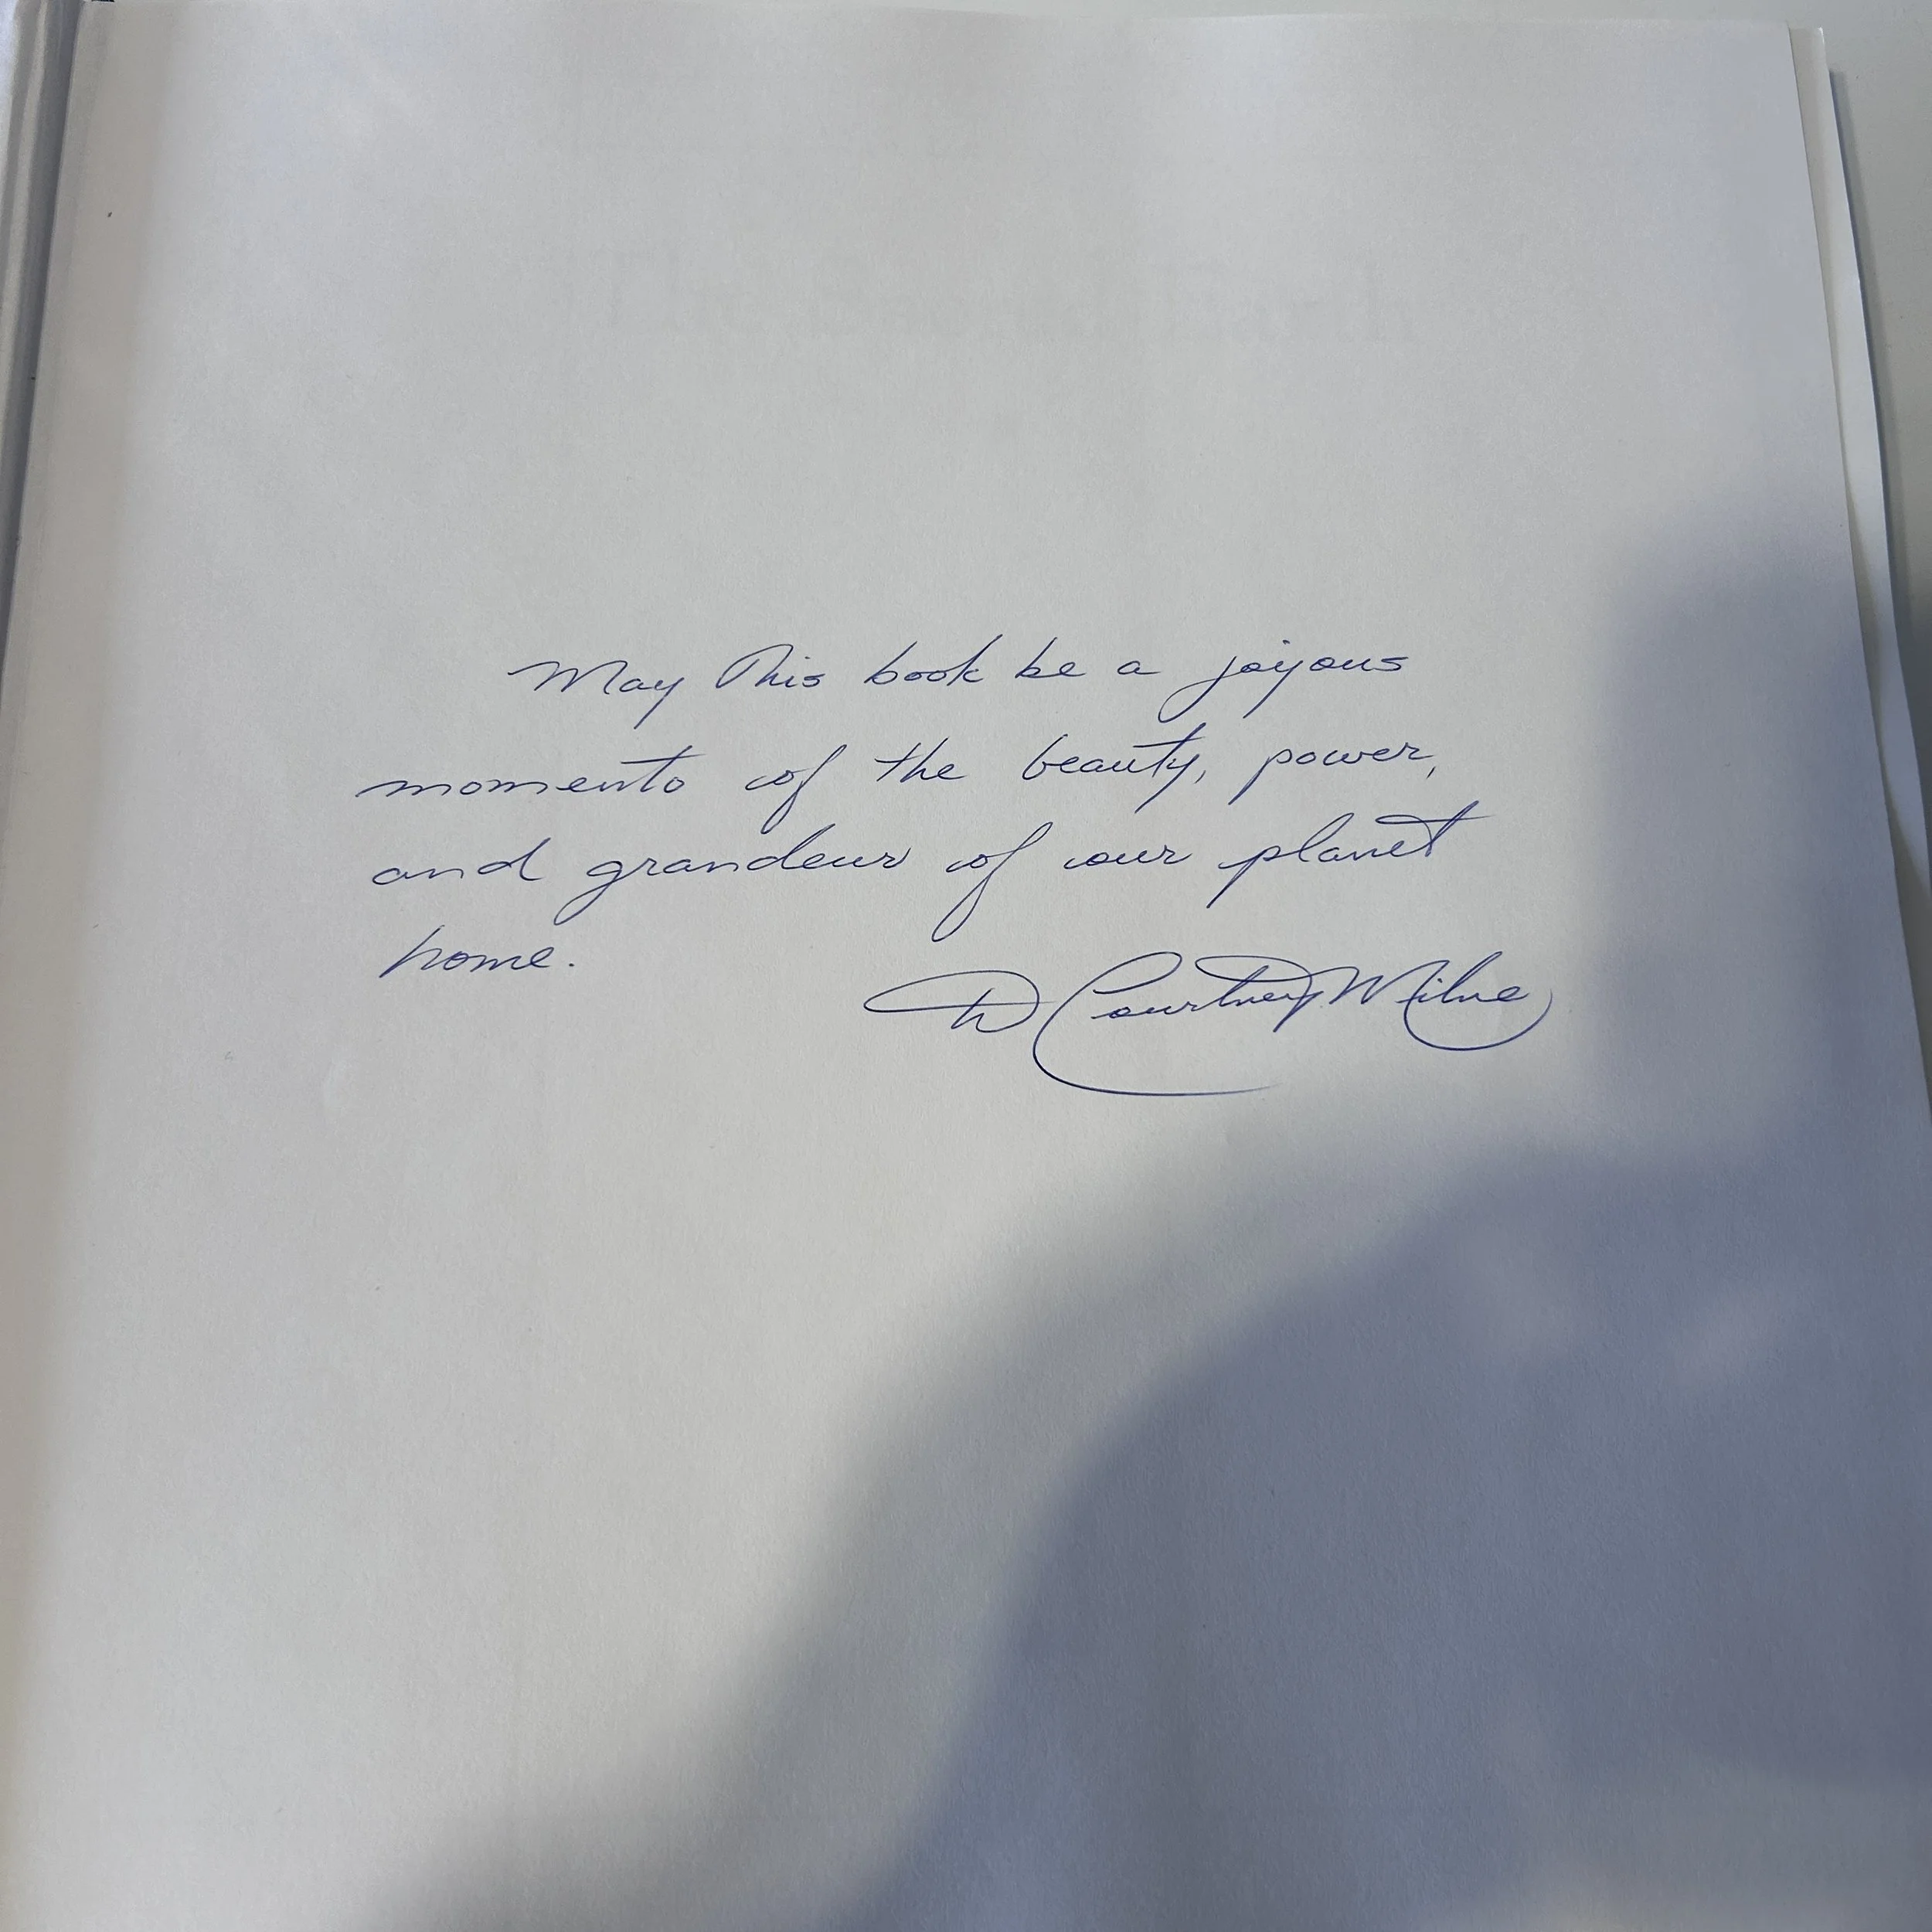 May This book be a joyous
momento of the beauty, power,
and grandeur of our planet
home.
D Courtney Milne